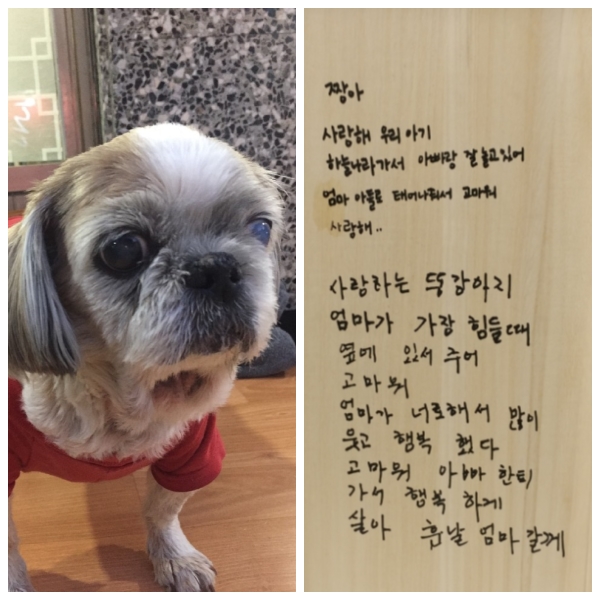 짱아
사랑해 우리 아기
하늘나라가서 아빠랑 잘 놀고 있어
엄마 아들로 태어나줘서 고마워
사랑해..
사랑하는 똥강아리
엄마가 가장 힘들때
옆에 있서 주어
고마워
엄마가 너로해서 많이
웃고 행복 했다
고마워 아빠 한티
가서 행복 하게
살아 훗날 엄마 갈께